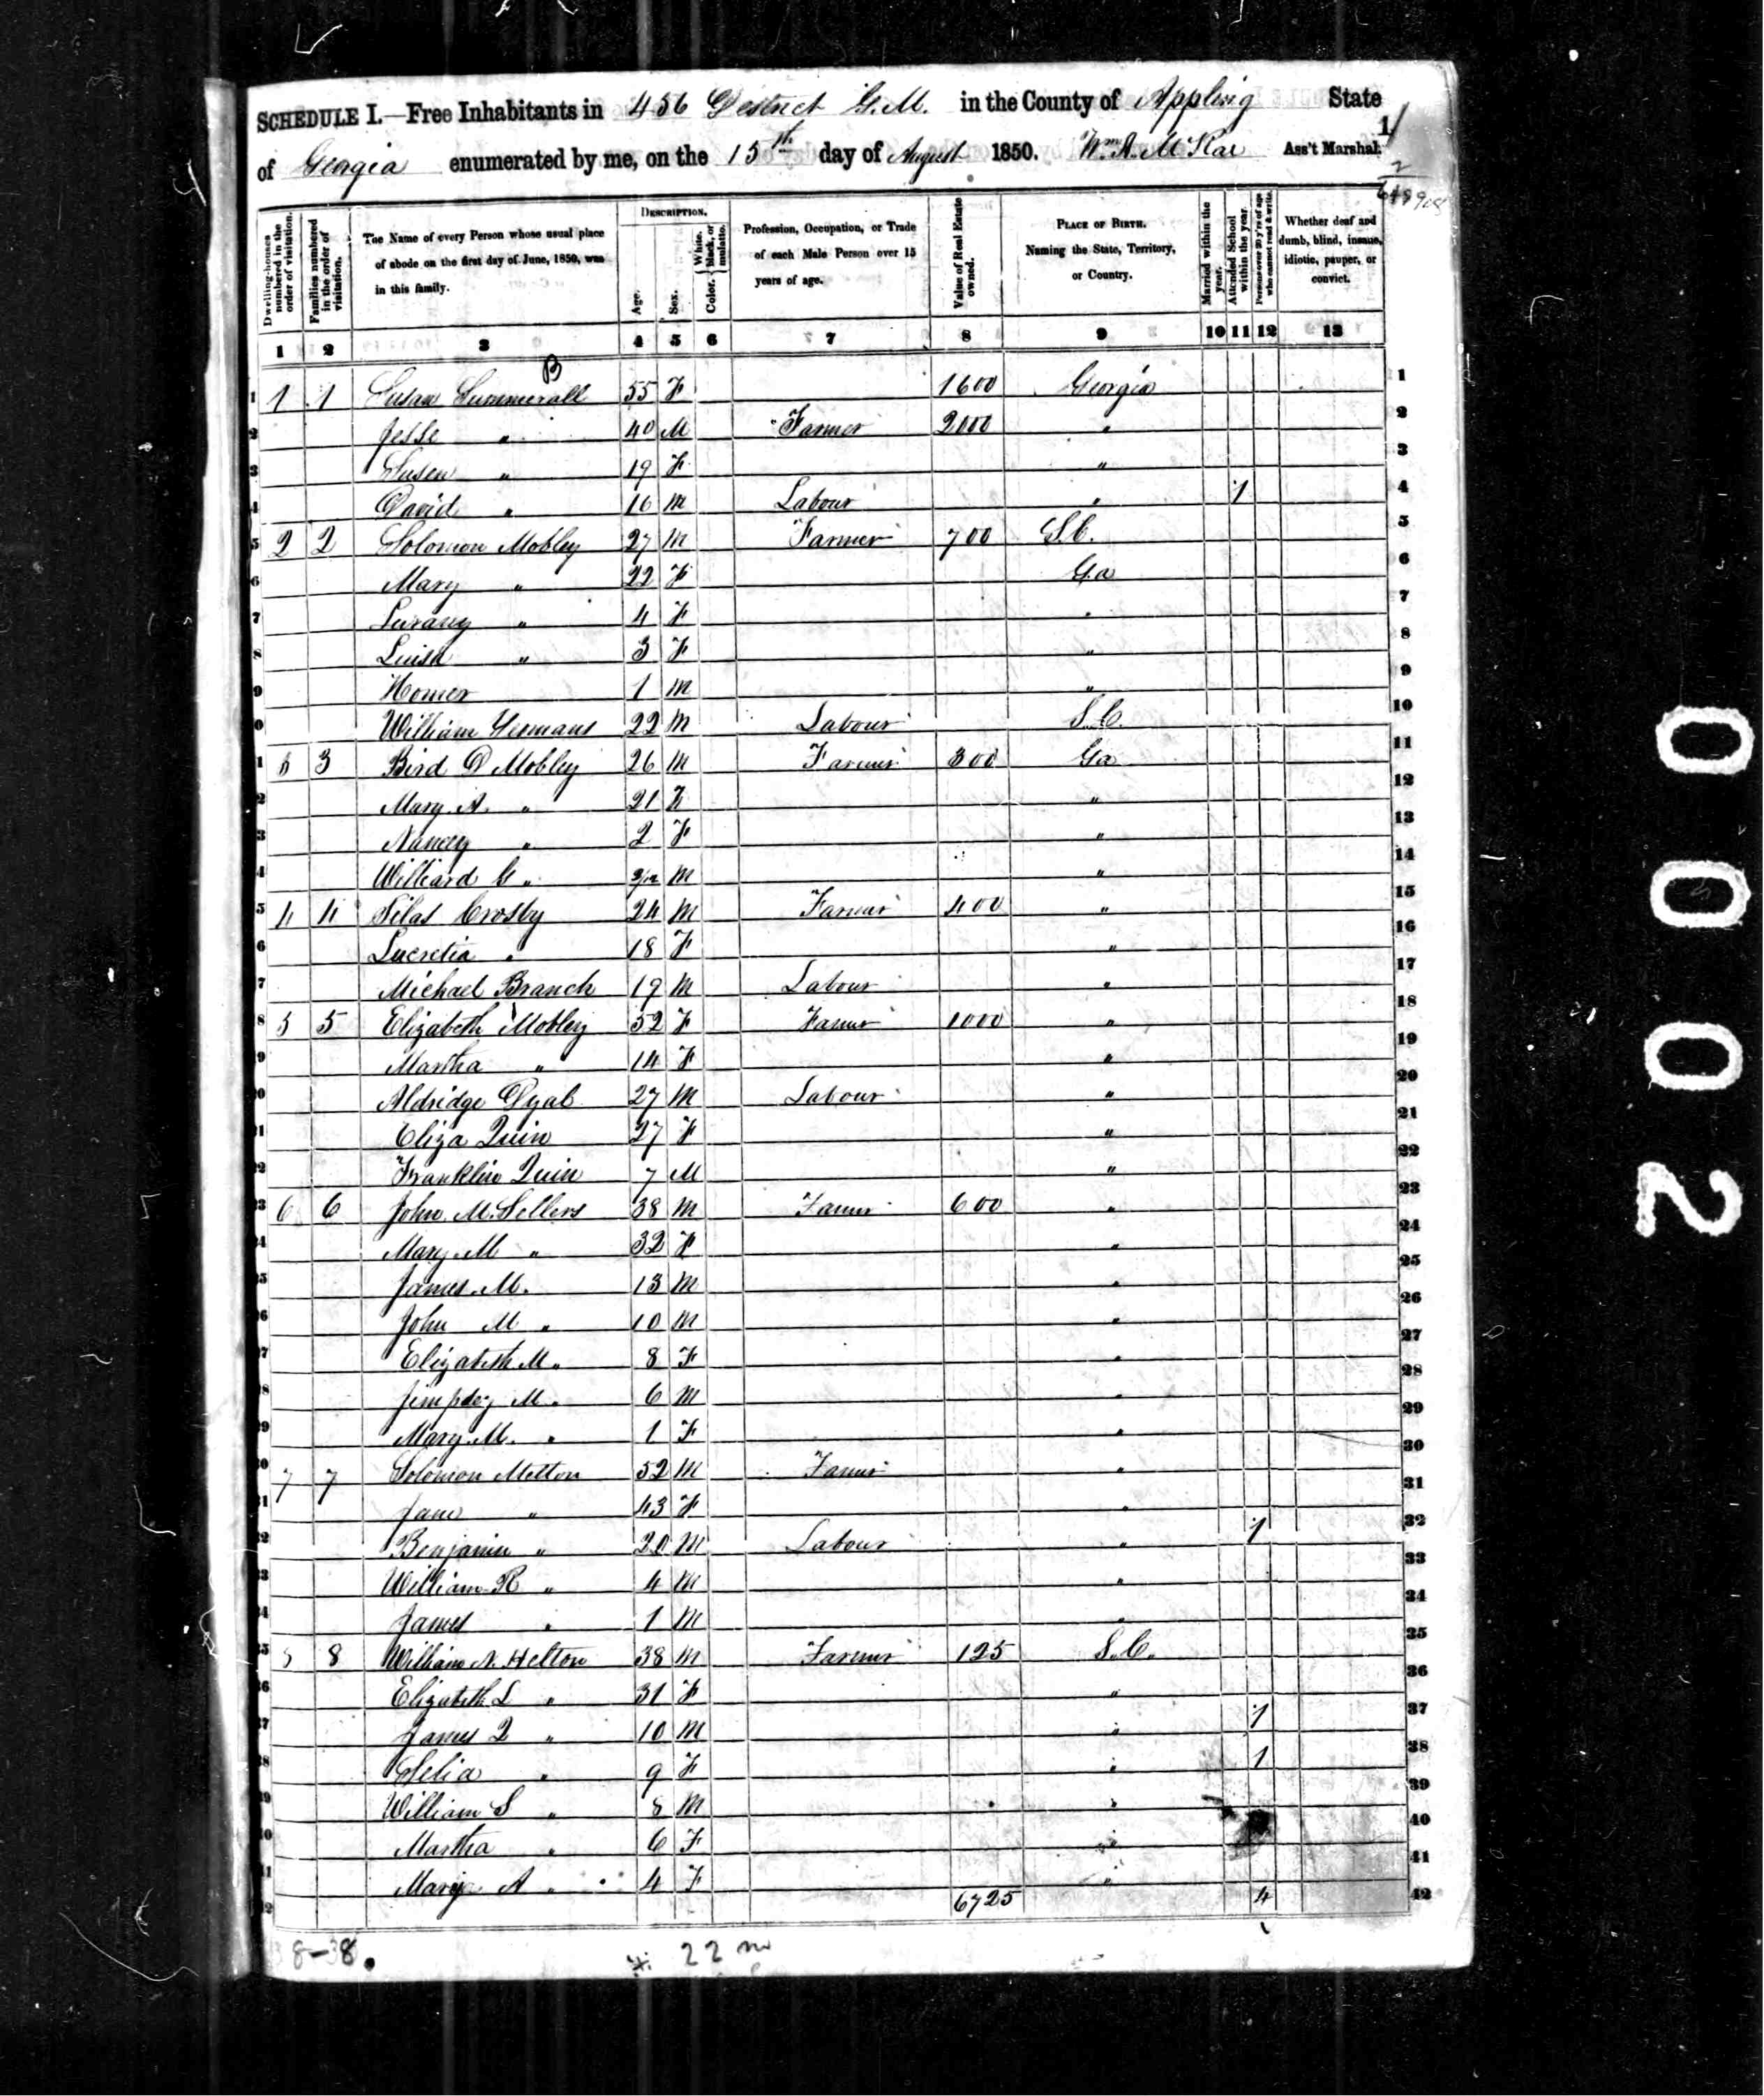 SCHEDULE I.—Free Inhabitants in 456 District G.M. in the County of Appling State
of Georgia enumerated by me, on the 15th day of August 1850. Wm A. McRae Ass't Marshal.
1
Dwelling-houses numbered in the order of visitation.
Families numbered in the order of visitation.
The Name of every Person whose usual place of abode on the first day of June, 1850, was in this family.
DESCRIPTION.
Age.
Sex.
Color. White, black, or mulatto.
Profession, Occupation, or Trade of each Male Person over 15 years of age.
Value of Real Estate owned.
PLACE OF BIRTH. Naming the State, Territory, or Country.
Married within the year.
Attended School within the year.
Persons over 20 y'rs of age who cannot read & write.
Whether deaf and dumb, blind, insane, idiotic, pauper, or convict.
1 2 3 4 5 6 7 8 9 10 11 12 13
B
1 1 1 Susan Summerall 55 F 1600 Georgia 1
2 Jesse " 40 M Farmer 2000 " 2
3 Susen " 19 F " 3
4 David " 16 M Labour " 1 4
5 2 2 Solomon Mobley 27 M Farmer 700 S.C. 5
6 Mary " 22 F Ga 6
7 Lurany " 4 F " 7
8 Luisa " 3 F " 8
9 Homer 1 M " 9
0 William Yeomans 22 M Labour S.C. 10
1 3 3 Bird D Mobley 26 M Farmer 300 Ga 11
2 Mary A. " 21 F " 12
3 Nancy " 2 F " 13
4 Williard G " M " 14
5 4 4 Silas Crosby 24 M Farmer 400 " 15
6 Lucretia " 18 F " 16
7 Michael Branch 19 M Labour " 17
8 5 5 Elizabeth Mobley 52 F Farmer 1000 " 18
9 Martha " 14 F " 19
20 Aldridge Dyal 27 M Labour " 20
21 Eliza Quin 27 F " 21
22 Franklin Quin 7 M " 22
23 6 6 John M. Sellers 38 M Farmer 600 " 23
24 Mary M " 32 F " 24
25 James M. 13 M " 25
26 John M " 10 M " 26
27 Elizabeth M " 8 F " 27
28 M " 6 M " 28
29 Mary M. " 1 F " 29
30 7 7 Solomon Melton 52 M Farmer " 30
31 Jane " 43 F " 31
32 Benjamin " 20 M Labour " 1 32
33 William R " 4 M " 33
34 James " 1 M " 34
35 8 8 William N. Helton 38 M Farmer 125 S.C. 35
36 Elizabeth L " 31 F " 36
37 James Q " 10 M " 1 37
38 Selia " 9 F " 1 38
39 William S " 8 M " 39
40 Martha " 6 F " 40
41 Mary A " 4 F " 41
42 6725 4 42
8-38.
22 m
0002